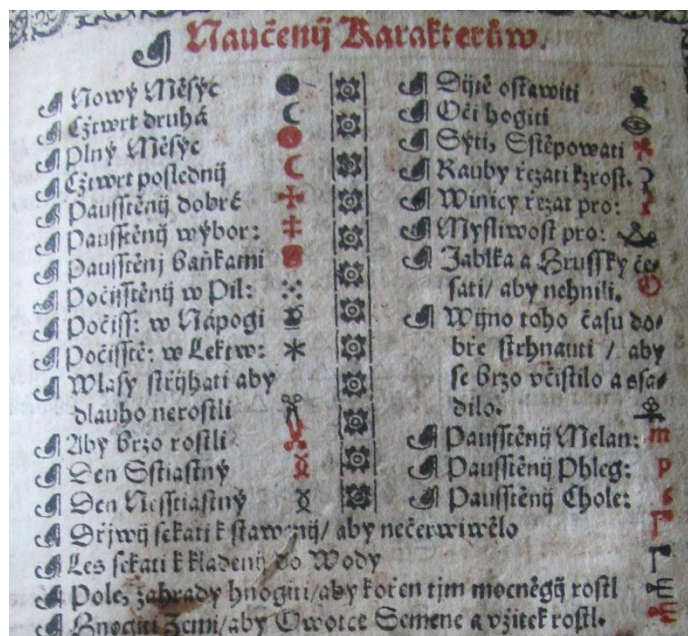 Naučenij Karakterůw.
Nowý Měsýc
Cžtwrt druhá
Plný Měsýc
Cžtwrt poslednij
Pausstěnij dobré
Pausstěnij wýbor:
Pausstěnj baňkami
Počisstěnij w Pil:
Počiss: w Nápogi
Počisstě: w Lektw:
Wlasy střijhati aby
dlauho nerostli
Aby brzo rostli
Den Sstiastný
Den Nesstiastný
Dijtě ostawiti
Oči hogiti
Sýti, Sstěpowati
Rauby řezati kzrost.
Winicy řezat pro:
Mysliwost pro:
Jablka a Hrussky če-
sati/ aby nehnili.
Wijno toho času do-
bře strhnauti / aby
se brzo včistilo a vsa-
dilo.
Pausstěnij Melan: m
Pausstěnij Phleg: p
Pausstěnij Chole: c
Dřjwij sekati k stawenij/ aby nečerwiwělo
Les sekati k kladenij do Wody
Pole, zahrady hnogiti/aby kořen tjm mocněgij rostl
Hnogiti Zemi/aby Owotce Semene a vžitek rostl.